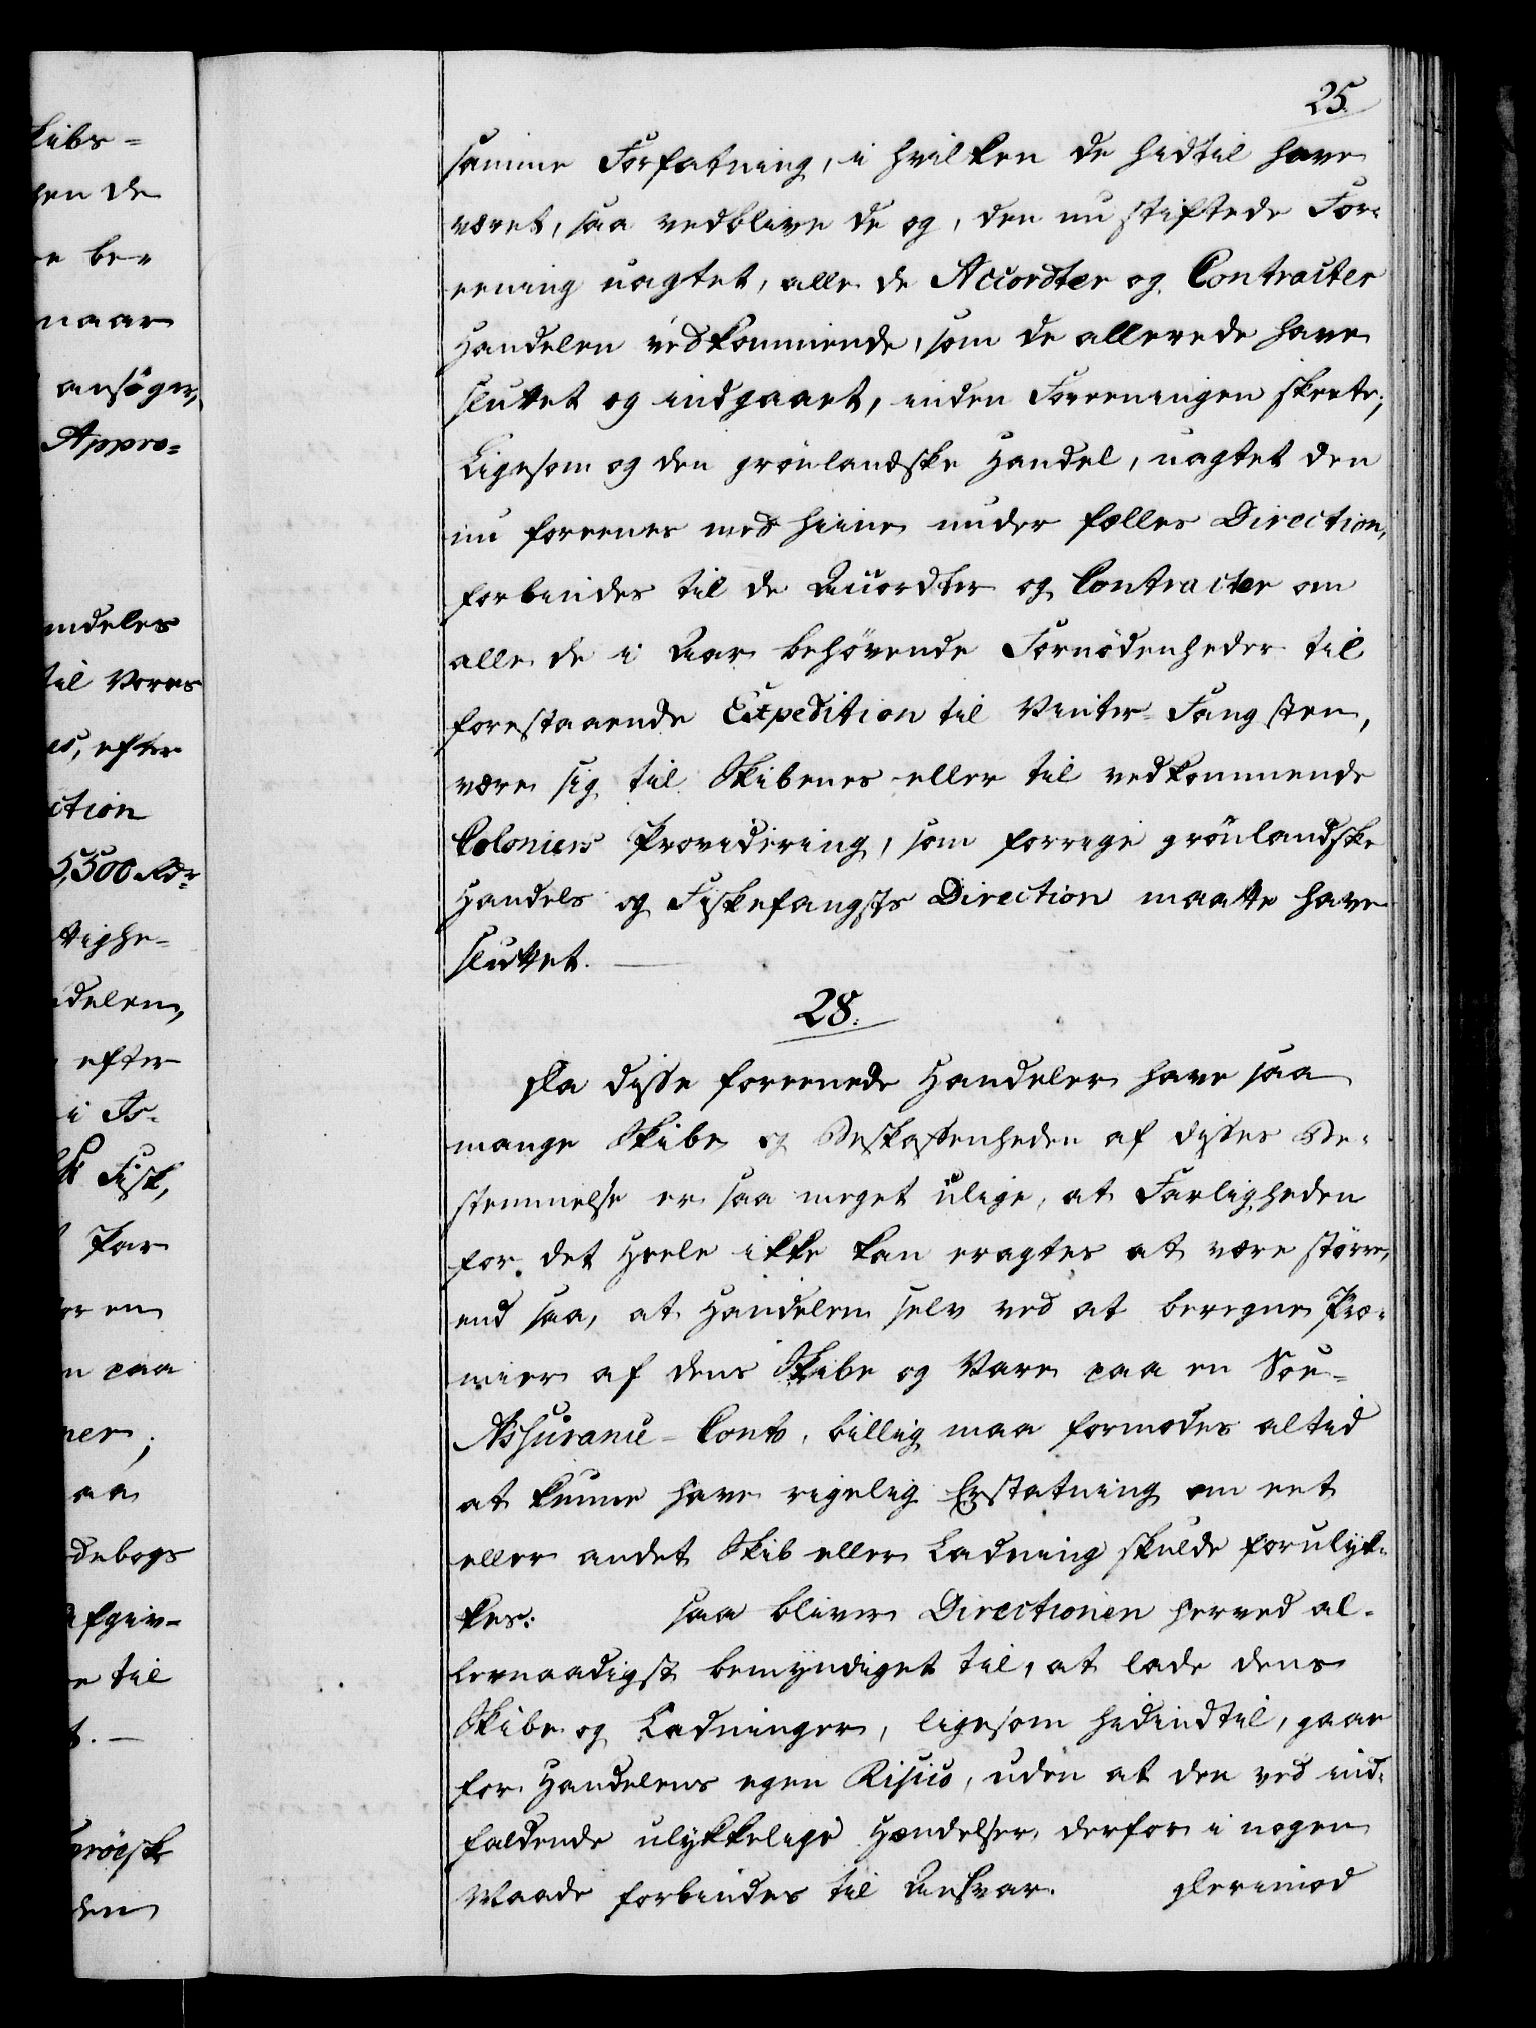 25.
samme Forfatning, i hvilken de hidtil have
været, saa vedblive de og, den nu stiftede For-
eening uagtet, alle de Accordter og Contracter
Handelen vedkommende, som de allerede have
sluttet og indgaaet, inden Foreeningen skeete;
Ligesom og den grönlandske Handel, uagtet den
nu foreenes med hiine under fælles Direction,
forbindes til de Accordter og Contracter om
alle de i Aar behövende Fornödenheder til
forestaaende Expedition til Vinter-Fangsten,
være sig til Skibenes eller til vedkommende
Coloniers Providering, som forrige grönlandske
Handels og Fiskefangsts Direction maatte have
sluttet.
28.
Da disse foreenede Handeler have saa
mange Skibe og Beskaffenheden af disses Be-
stemmelse er saa meget ulige, at Farligheden
for det Heele ikke kan eragtes at være större,
end saa, at Handelen selv ved at beregne Præ-
mier af dens Skibe og Vare paa en Söe-
Assurance-Conto, billig maa formodes altid
at kunne have rigelig Erstatning om eet
eller andet Skib eller Ladning skulde forulyk-
kes: saa bliver Directionen herved al-
lernaadigst bemyndiget til, at lade dens
Skibe og Ladninger, ligesom hidindtil, gaae
for Handelens egen Risico, uden at den ved ind-
faldende ulykkelige Hændelser derfor i nogen
Maade forbindes til Ansvar. Derimod
kibs-
hen de
be-
naar
ansöger,
Appro-
mdeles
til Vores
es, efter
ction
5,500 Rdr
ttighe-
delen,
efter
i Is-
Fisk,
Par
or en
n paa
ner;
aa
debogs
afgiv-
e til
t.
den